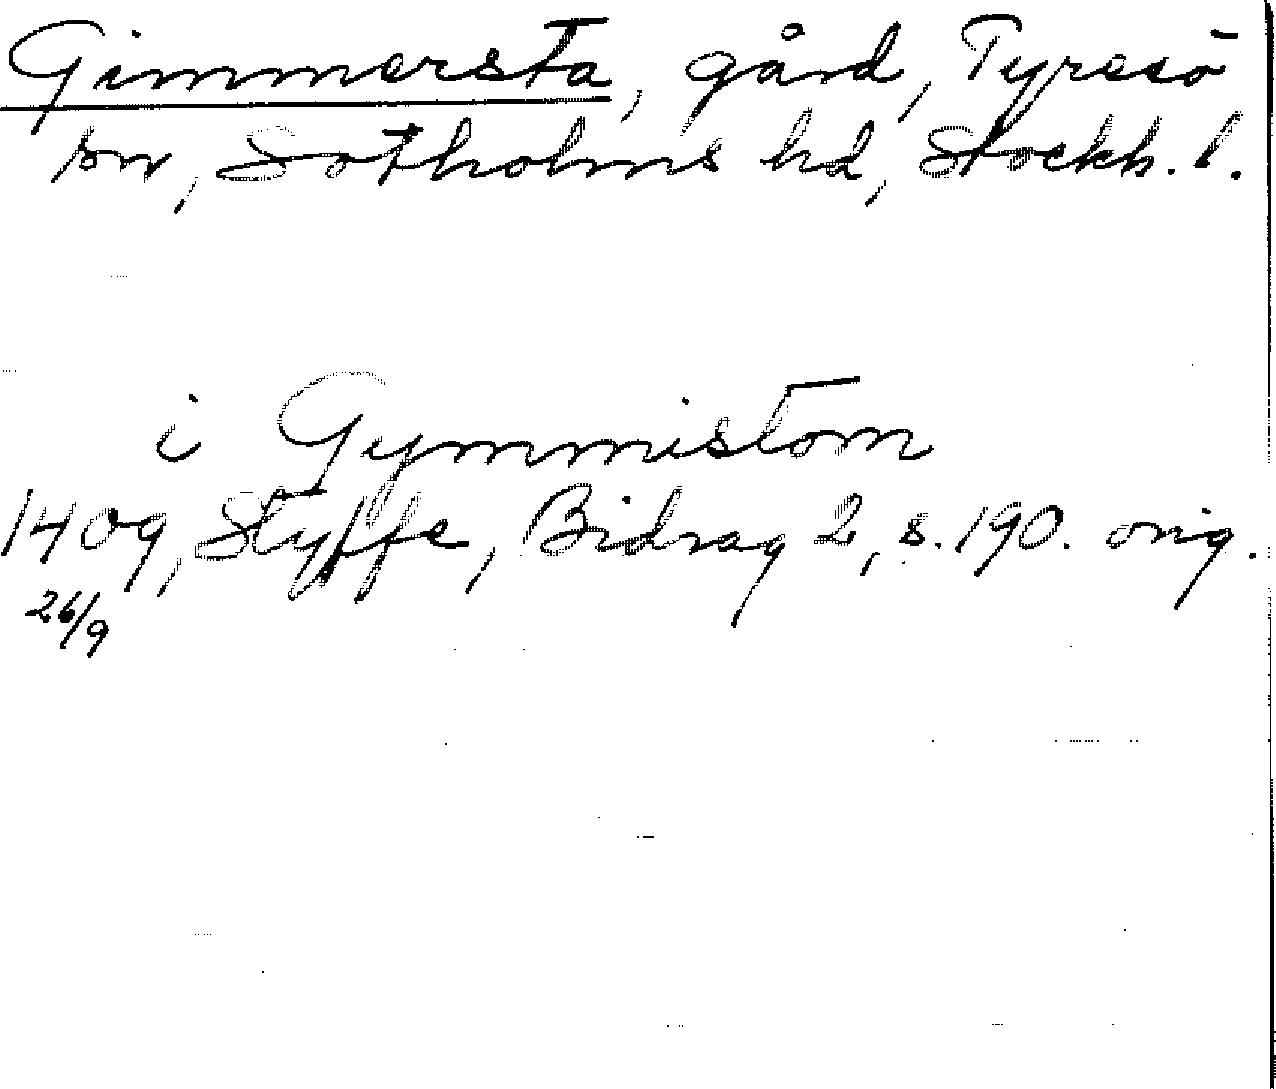 Gimmersta, gård, Tyresö
sn, Sotholms hd, Stockh. l.
i Gymmistom
1409, Styffe, Bidrag 2, s. 190. orig.
26/9